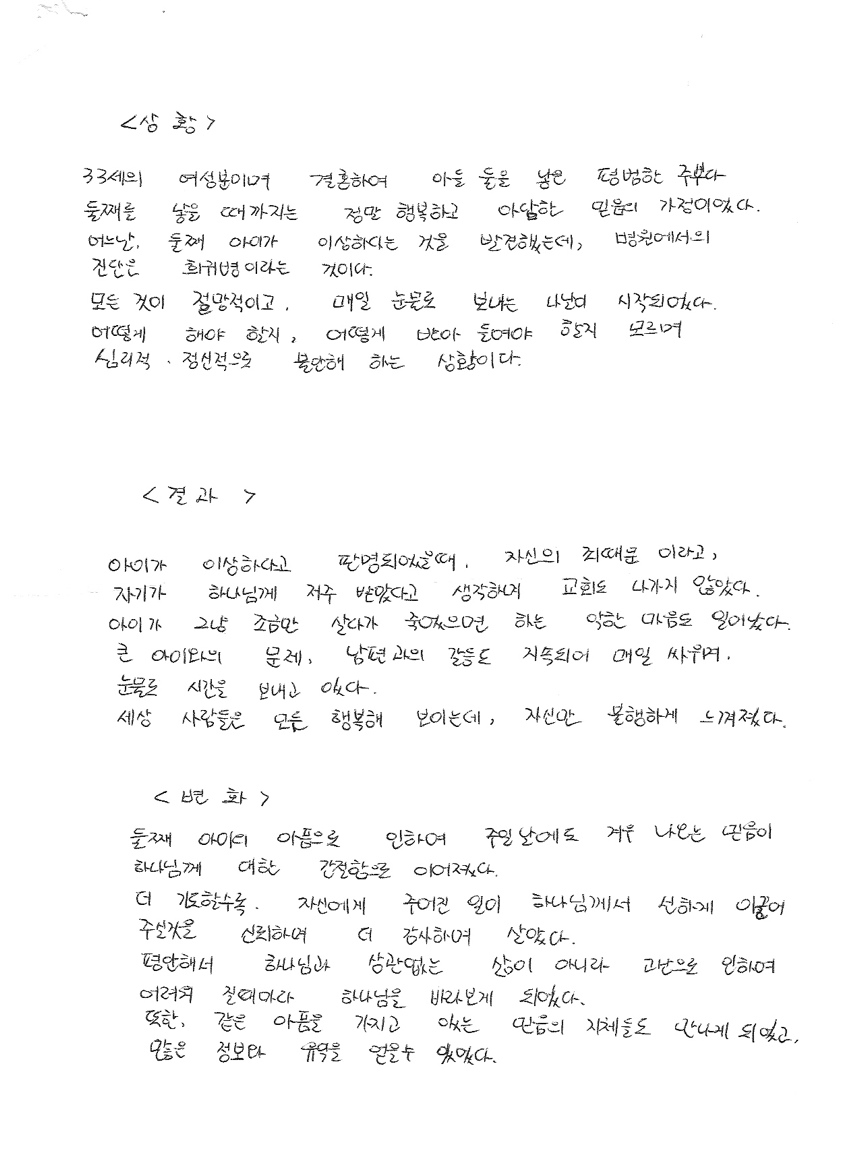 <상 황>
33세의 여성분이며 결혼하여 아들 둘을 낳은 평범한 주부다
둘째를 낳을 때까지는 정말 행복하고 아담한 믿음의 가정이었다.
어느날, 둘째 아이가 이상하다는 것을 발견했는데, 병원에서의
진단은 희귀병이라는 것이다.
모든 것이 절망적이고, 매일 눈물로 보내는 나날이 시작되었다.
어떻게 해야 할지, 어떻게 받아 들여야 할지 모르며
심리적 · 정신적으로 불안해 하는 상황이다.
<결과 >
아이가 이상하다고 판명되었을때, 자신의 죄때문 이라고,
자기가 하나님께 저주 받았다고 생각하며 교회도 나가지 않았다.
아이가 그냥 조금만 살다가 죽었으면 하는 악한 마음도 일어났다.
큰 아이와의 문제, 남편과의 갈등도 지속되어 매일 싸워져,
눈물로 시간을 보내고 있다.
세상 사람들은 모든 행복해 보이는데, 자신만 불행하게 느껴졌다.
< 변 화 >
둘째 아이의 아픔으로 인하여 주일날에도 겨우 나오는 믿음이
하나님께 대한 간절함으로 이어졌다.
더 기도할수록, 자신에게 주어진 일이 하나님께서 선하게 이끌어
주실것을 신뢰하며 더 감사하며 살았다.
평안해서 하나님과 상관없는 삶이 아니라 고난으로 인하여
어려워 질때마다 하나님을 바라보게 되었다.
또한, 같은 아픔을 가지고 있는 믿음의 지체들도 만나게 되었고,
많은 정보와 유익을 얻을수 있었다.